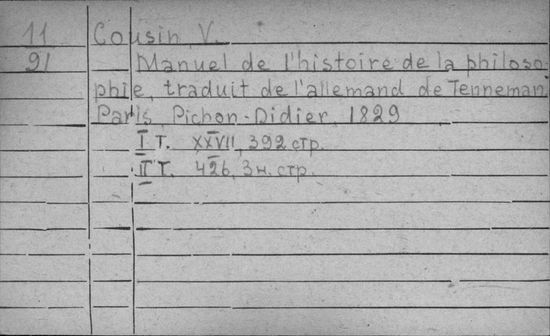 11 Cousin, V.
91 Manuel de l'histoire de la philoso-
phie, traduit de l'allemand de Tenneman.
Paris, Pichon-Didier, 1829
I т. XXVII, 392 стр.
II т. 426, 3 н. стр.